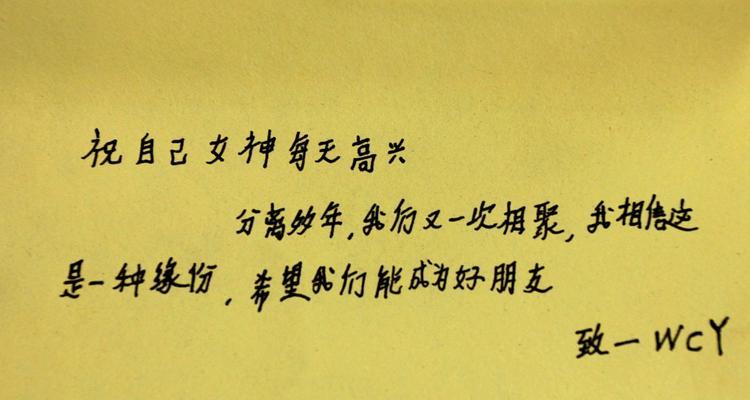 祝自己女神每天高兴
分离多年,我们又一次相聚,我相信这
是一种缘份,希望我们能成为好朋友
致一WCY